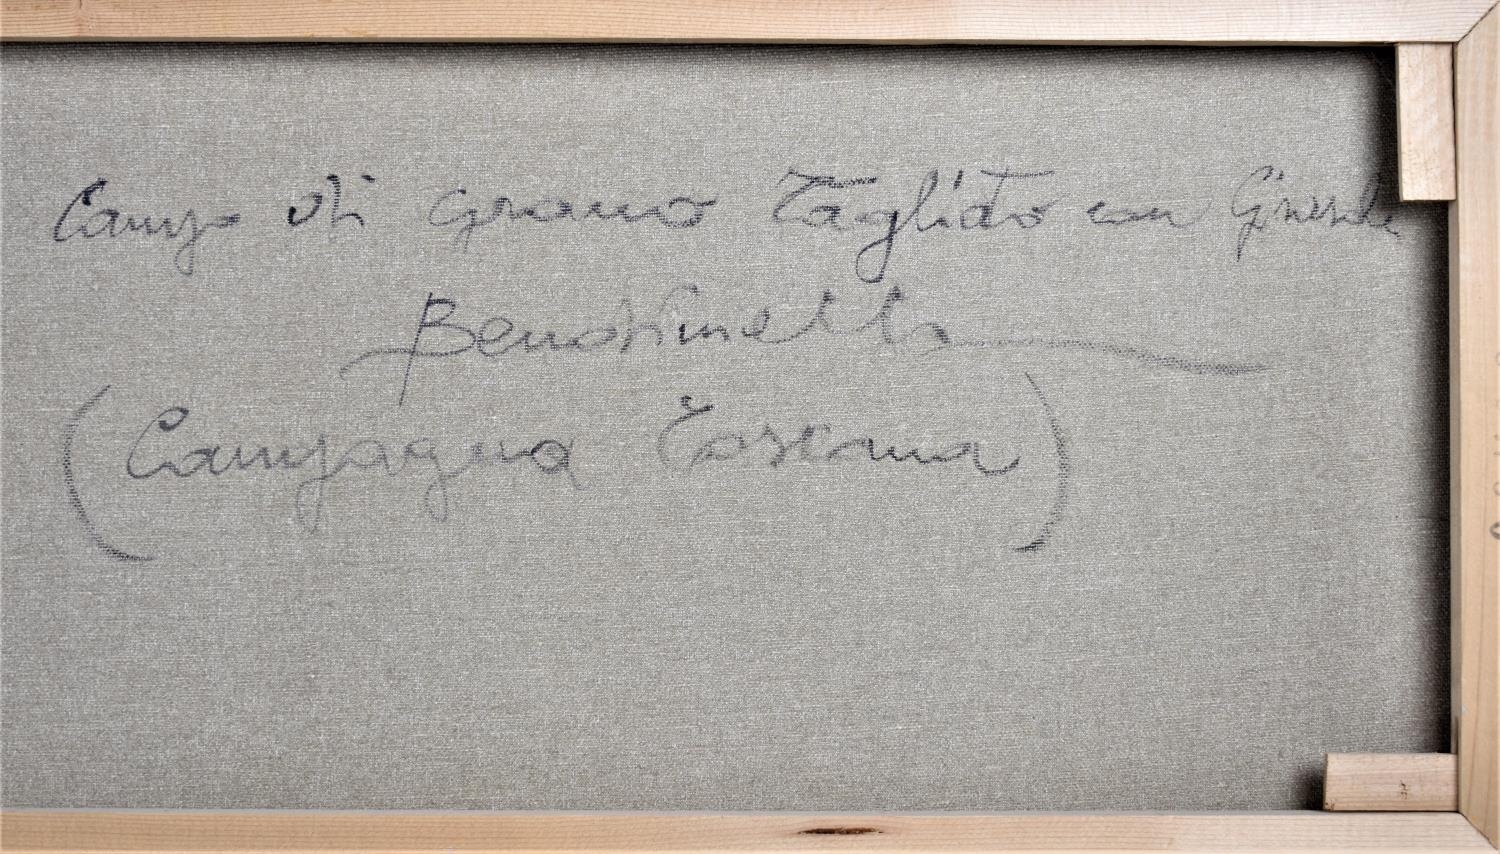 Campo di grano Tagliato con
Bendinelli
(Campagna Toscana)